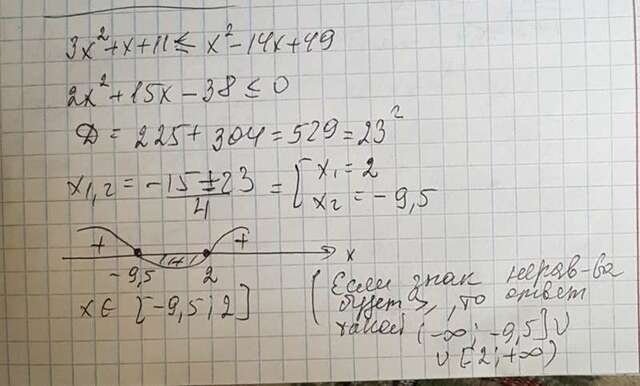 3x²+x+11≤x²-14x+49
2x²+15x-38≤0
Д=225+304=529=23²
x₁,₂=-15±23/4=[x₁=2
x₂=-9,5
+ + x
-9,5 2
x∈[-9,5;2]
(Если знак нерав-ва
будет ≥, то ответ
такой (-∞;-9,5]∪
∪[2;+∞)